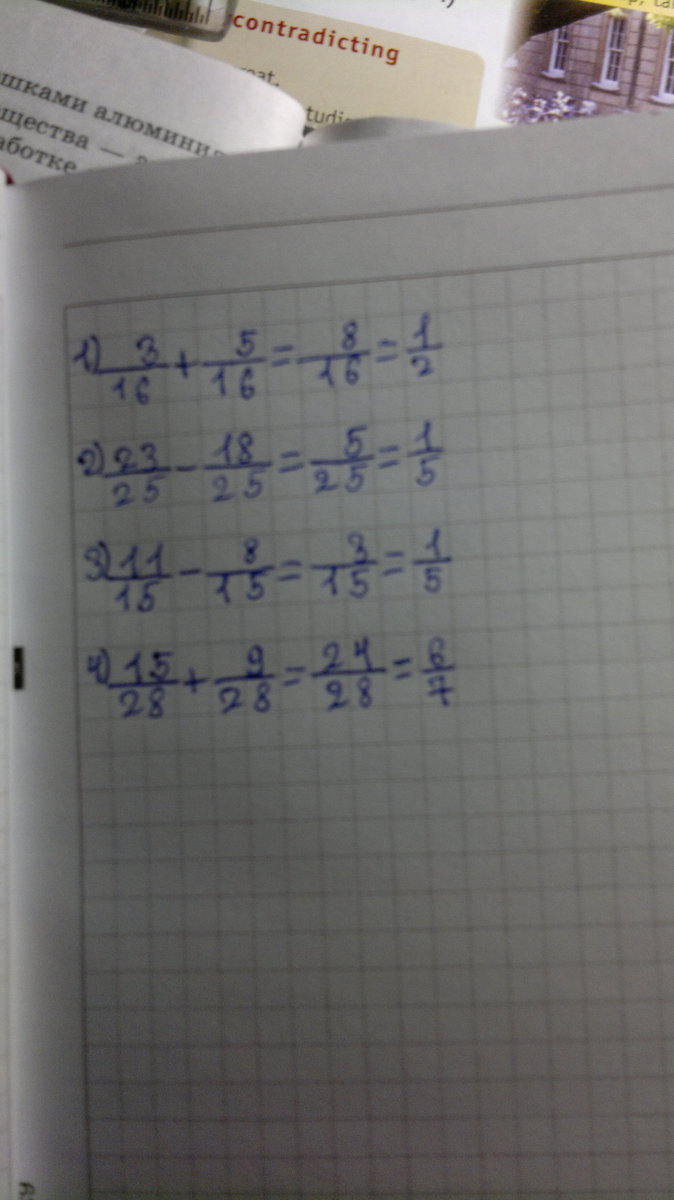 contradicting
шками алюминия
щества —
аботке
1) 3/16 + 5/16 = 8/16 = 1/2
2) 23/25 - 18/25 = 5/25 = 1/5
3) 11/15 - 8/15 = 3/15 = 1/5
4) 15/28 + 9/28 = 24/28 = 6/7